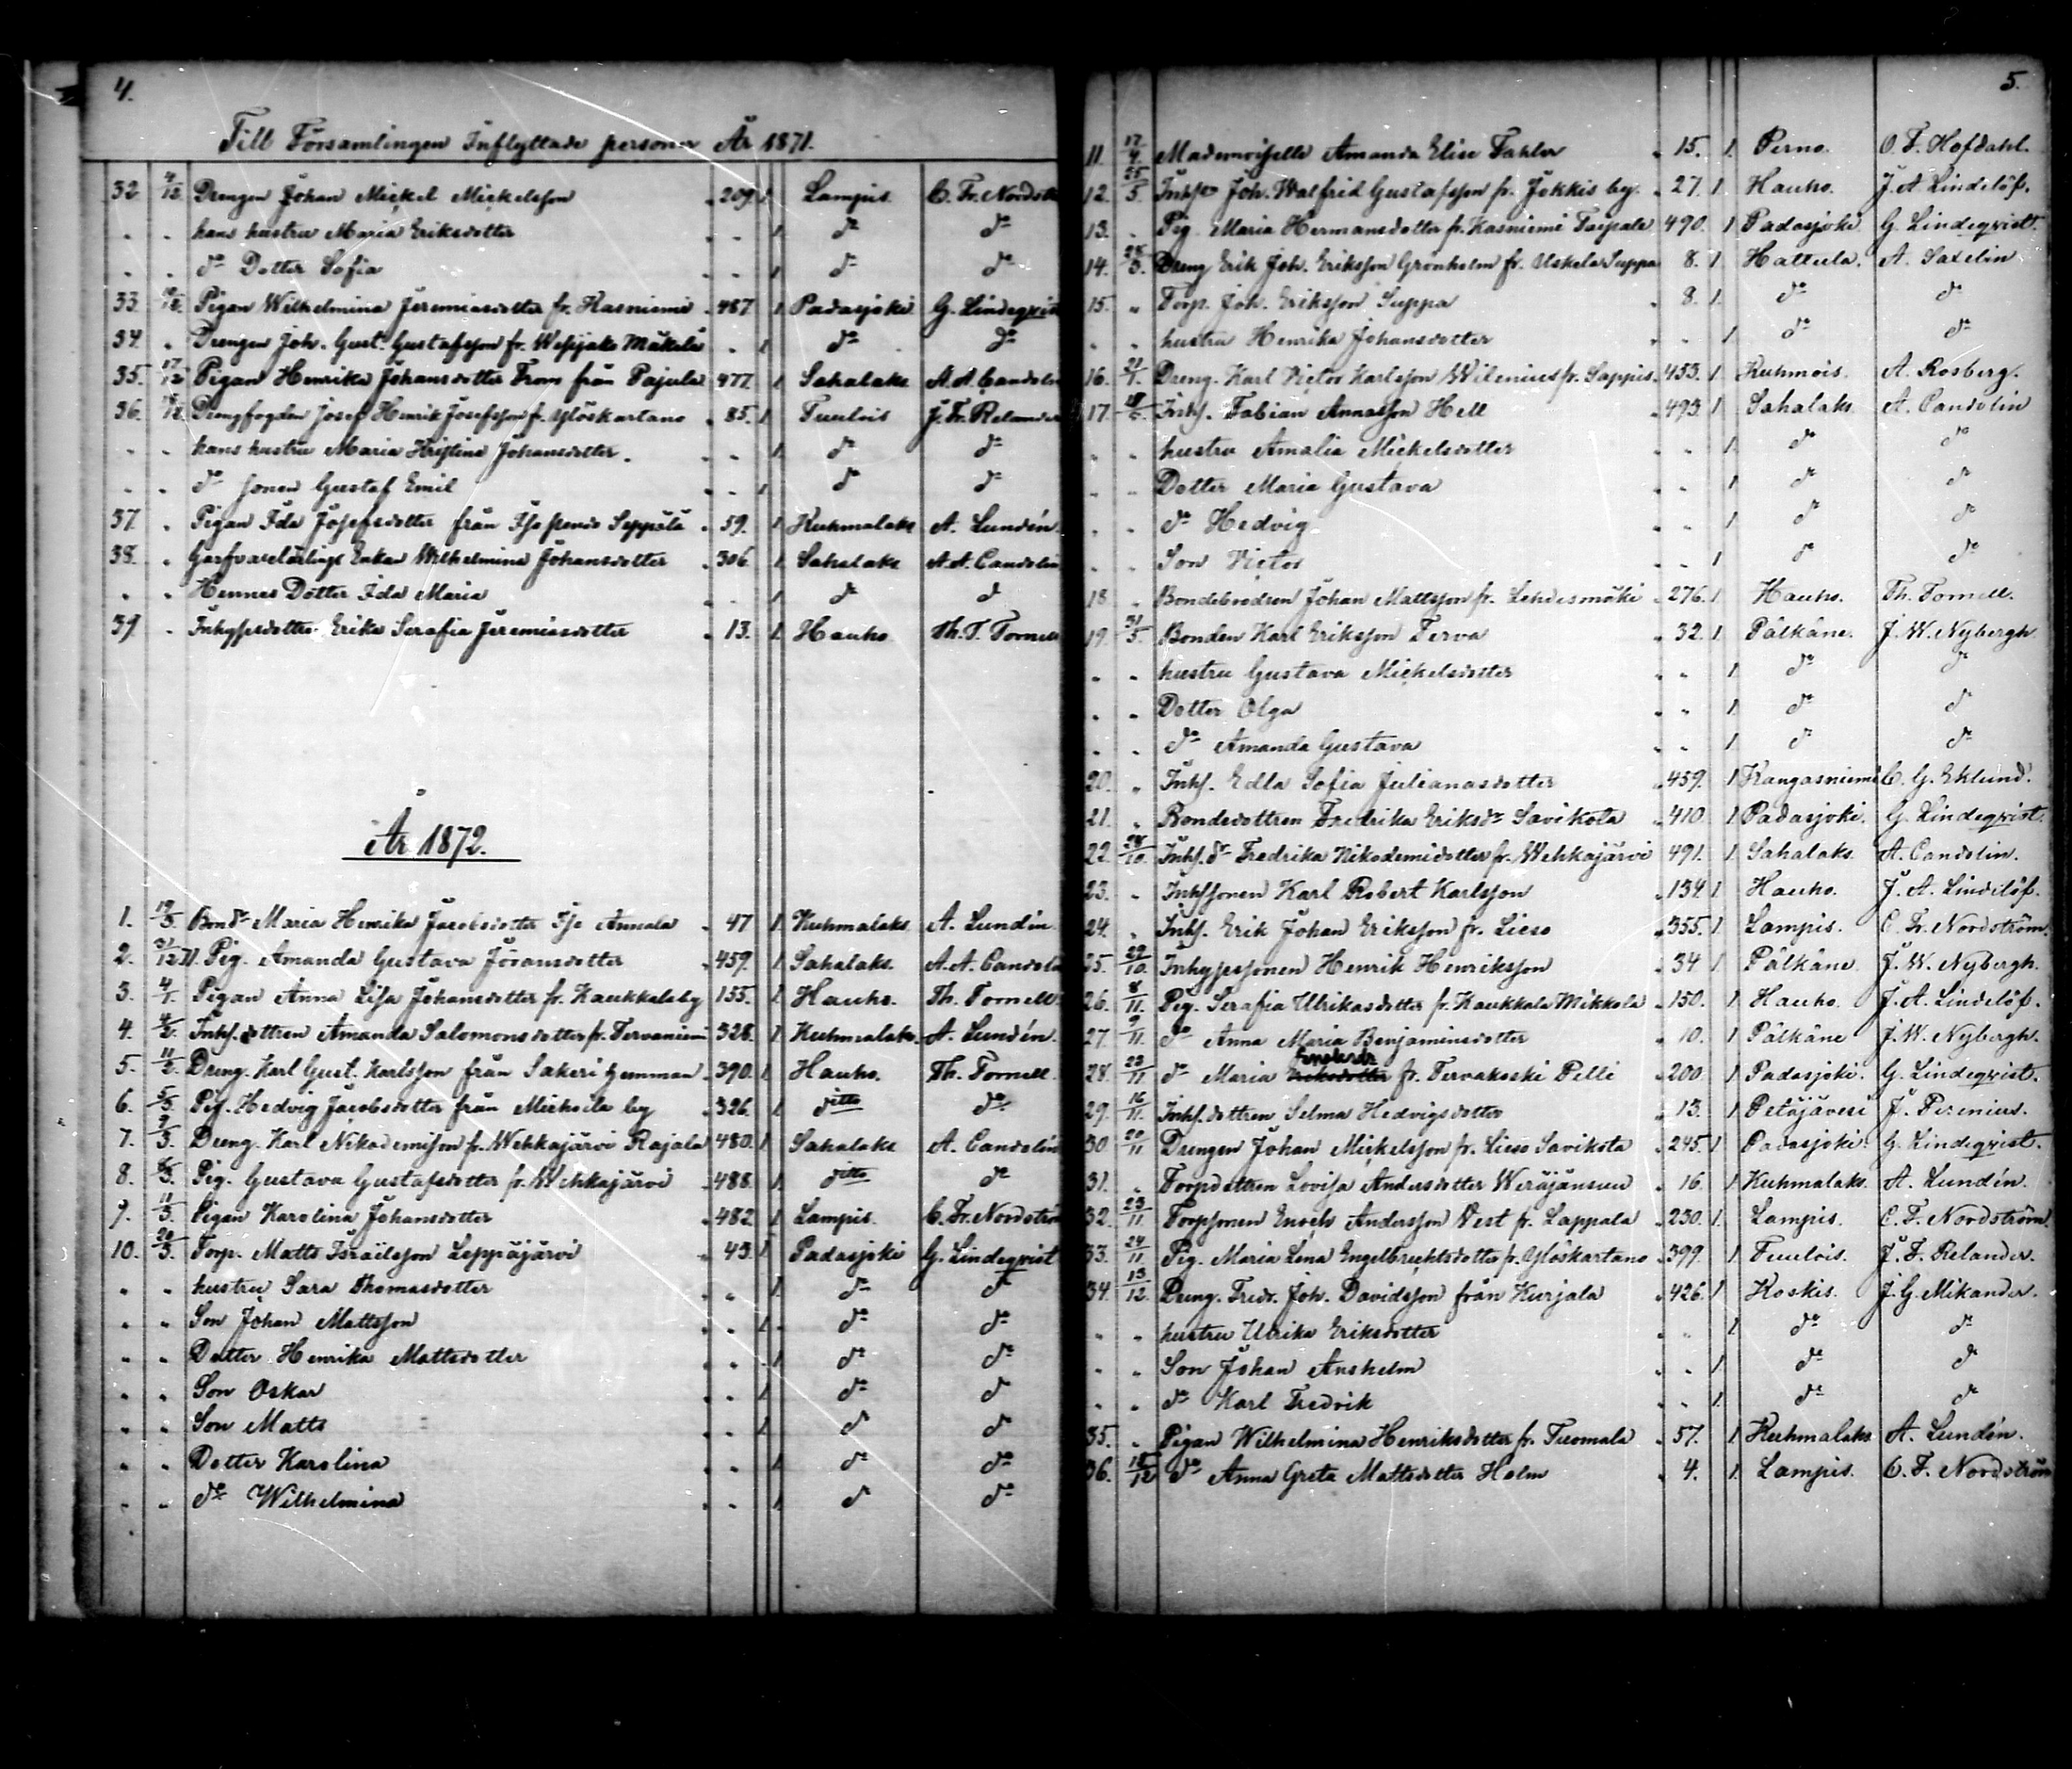 4.
Till Församlingen Inflyttade personer År 1871.
32 4/12 Drengen Johan Mickel Mickelsson 209. 1 Lampis. C. Fr. Nordst
" " hans hustru Maria Eriksdotter " " 1 do do
" " do Dotter Sofia " " 1 do do
33. Pigan Wilhelmina Jeremiasdotter fr. Kasniemi 487. 1 Padasjoki G. Lindeqvist
34. " Drengen Joh. Gust. Gustafsson fr. Mäkelä " 1 do do
35. 17/12 Pigan Henrika Johansdotter From från Pajula 477. 1 Sahalaks A. A. Candolin
36. Drengfogden Josef Henrik Josefsson fr. Ylöskartano 85. 1 Tuulois J. Fr. Relander
" " hans hustru Maria Kristina Johansdotter. " " 1 do do
" " do sonen Gustaf Emil " " 1 do do
37. " Pigan Ida Josefsdotter från Seppälä 59. 1 Kuhmalaks A. Lundén.
38. " Enkan Wilhelmina Johansdotter 306. 1 Sahalaks A. A. Candolin
" " Hennes Dotter Ida Maria " 1 do do
39. " Inhysesdotter Erika Serafia Jeremiasdotter 13. 1. Hauho Th. T. Tornell
År 1872.
1. Bondr Maria Henrika Jacobsdotter Iso Annala 47 1 Kuhmalaks. A. Lundén
2. 31/12 71. Pig. Amanda Gustava Göransdotter 459. 1 Sahalaks. A. A. Candolin
3. 4/1. Pigan Anna Lisa Johansdotter fr. Kaukkala by 155. 1. Hauho. Th. Tornell
4. 4/2. Inhs. dottren Amanda Salomonsdotter fr. Tervaniemi 328. 1 Kuhmalaks. A. Lundén.
5. 11/2. Dreng. Karl Gust. Karlsson från Sakeri hemman 390. 1. Hauho. Th. Tornell.
6. 5/3. Pig. Hedvig Jacobsdotter från by 326. 1 ditto do
7. 7/3. Dreng. Karl Nikodemisson fr. Wehkajärvi Rajala 480. 1 Sahalaks A. Candolin
8. Pig. Gustava Gustafsdotter fr. Wehkajärvi 488. 1. ditto do
9. 11/3. Pigan Karolina Johansdotter 482. 1 Lampis. C. Fr. Nordström
10. 20/3. Torp. Matts Israilsson Leppäjärvi 43. 1 Padasjoki G. Lindeqvist
" " hustru Sara Thomasdotter " 1. do do
" " Son Johan Mattsson " 1. do do
" " Dotter Henrika Mattsdotter " 1 do do
" " Son Oskar " 1 do do
" " Son Matts " 1 do do
" " Dotter Karolina " 1 do do
" " do Wilhelmina " 1 do do
5.
11. 17/4. Mademoiselle Amanda Elise Fahler 15. 1. Perno. O. F. Hofdahl.
12. 25/5. Inhs Joh. Walfrid Gustafsson fr. Jokkis by. 27. 1. Hauho. J. A. Lindelöf.
13. " Pig. Maria Hermansdotter fr. Kasniemi Taipale 490. 1 Padasjoki G. Lindeqvist.
14. Dreng Erik Joh. Eriksson Grönholm fr. Uskela Suppa 8. 1. Hattula. A. Saxelin
15. " Torp. Joh. Eriksson Suppa 8. 1. do do
" " hustru Henrika Johansdotter " 1 do do
16. Dreng. Karl Victor Karlsson Wilenius fr. Sappis. 453. 1 Kuhmois. A. Rosberg.
17. Inhs. Fabian Annasson Hell 493. 1 Sahalaks A. Candolin
" " hustru Amalia Mickelsdotter " " 1 do do
" " Dotter Maria Gustava " " 1 do do
" " do Hedvig " " 1 do do
" " Son Victor " " 1 do do
18. " Bondebrodren Johan Mattsson fr. Lehdesmäki 276. 1. Hauho. Th. Tornell.
19. 31/5. Bonden Karl Eriksson Terva 32. 1. Pälkäne. J. W. Nybergh
" " hustru Gustava Mickelsdotter " " 1 do do
" " Dotter Olga " " 1 do do
" " do Amanda Gustava " " 1. do do
20. " Inhs. Edla Sofia Julianasdotter 459. 1 Kangasniemi C. G. Eklund.
21. " Bondedottren Fredrika Eriksdr Savikota 410. 1 Padasjoki. G. Lindeqvist.
22. 28/10. Inhs. dr Fredrika Nikodemidotter fr. Wehkajärvi 491. 1. Sahalaks. A. Candolin.
23. " Inhssonen Karl Robert Karlsson 134. 1 Hauho. J. A. Lindelöf.
24. " Inhs. Erik Johan Eriksson fr. Lieso 355. 1. Lampis. C. Fr. Nordström.
25. 29/10. Inhysessonen Henrik Henriksson 34 1 Pälkäne J. W. Nybergh.
26. 8/11. Pig. Serafia Ulrikasdotter fr. Kaukkala Mikkola 150. 1. Hauho. J. A. Lindelöf.
27. 9/11. do Anna Maria Benjaminsdotter 10. 1 Pälkäne J. W. Nybergh.
28. 23/11. do Maria fr. Tervakoski Pelli 200 1 Padasjoki. G. Lindeqvist.
29. 16/11. Inhs. dottren Selma Hedvigsdotter 13. 1 Petäjävesi J. Perenius.
30. 20/11. Drengen Johan Mickelsson fr. Lieso Savikota 245. 1 Padasjoki. G. Lindeqvist.
31. " Torpdottren Lovisa Andersdotter Weräjänsuu 16. 1 Kuhmalaks. A. Lundén.
32. 23/11. Torpsonen Enoch Andersson Vest fr. Lappala 230. 1. Lampis. C. F. Nordström
33. 24/11. Pig. Maria Lena Engelbrechtsdotter fr. Ylöskartano 399. 1 Tuulois. J. F. Relander.
34. 13/12. Dreng. Fredr. Joh. Davidsson från Kurjala 426. 1 Koskis. J. G. Mikander.
" " hustru Ulrika Eriksdotter " 1 do do
" " Son Johan Anshelm " " 1. do do
" " do Karl Fredrik " " 1. do do
35. " Pigan Wilhelmina Henriksdotter fr. Tuomala 57. 1. Kuhmalaks A. Lundén.
36. 18/12 do Anna Greta Mattsdotter Holm 4. 1. Lampis. C. F. Nordström